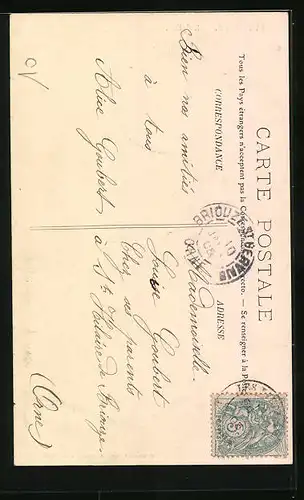 CARTE POSTALE
Tous les Pays étrangers n'acceptent pas la Correspondance au recto. — Se renseigner à la Poste
CORRESPONDANCE
ADRESSE
Bien nos amitiés
à tous
Alice Goubert
Mademoiselle
Louise Goubert
Chez ses parents
à St Hilaire de Briouze
(Orne)
BRIOUZE
ORNE
5